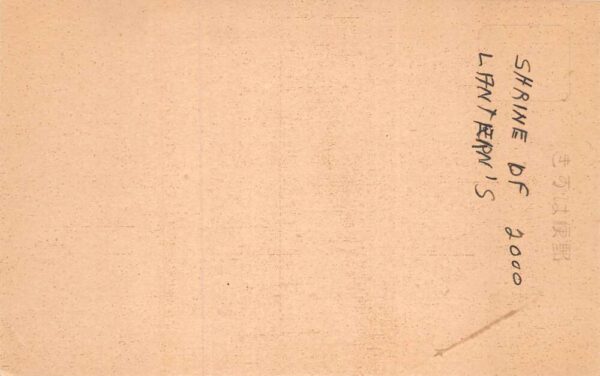 SHRINE OF 2000
LANTERN'S
きがは便郵